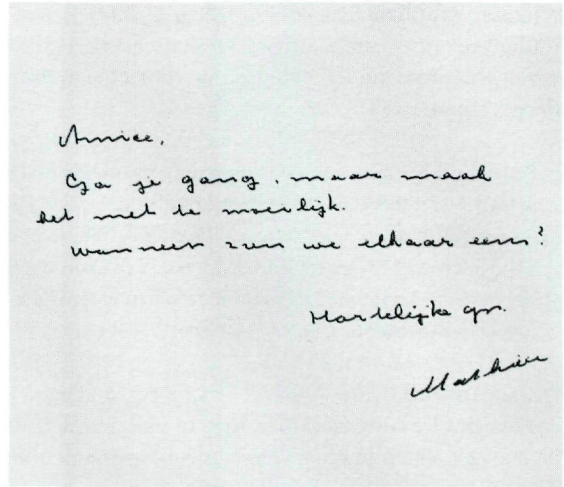 Amice,
Ga je gang, maar maak
het niet te moeilijk.
Wanneer zien we elkaar eens?
Hartelijke gr.
Mathieu